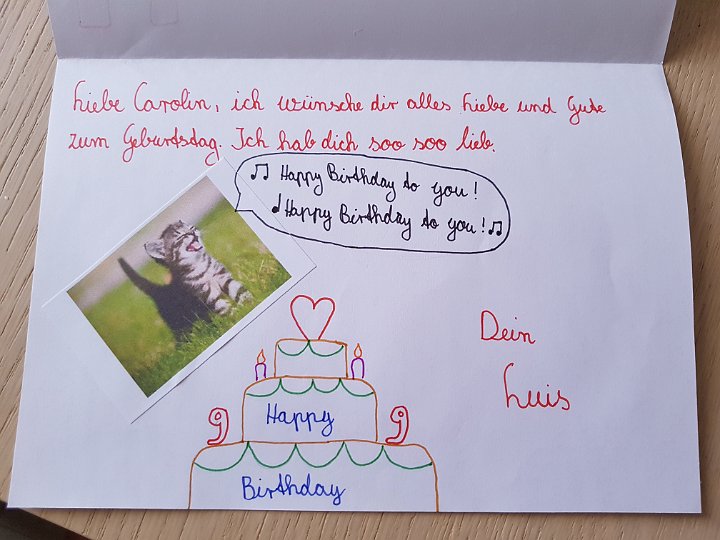 Liebe Carolin, ich wünsche dir alles Liebe und Gute
zum Geburtsdag. Ich hab dich soo soo lieb.
♫ Happy Birthday to you!
♩Happy Birthday to you!♫
Dein
Luis
9 9
Happy
Birthday